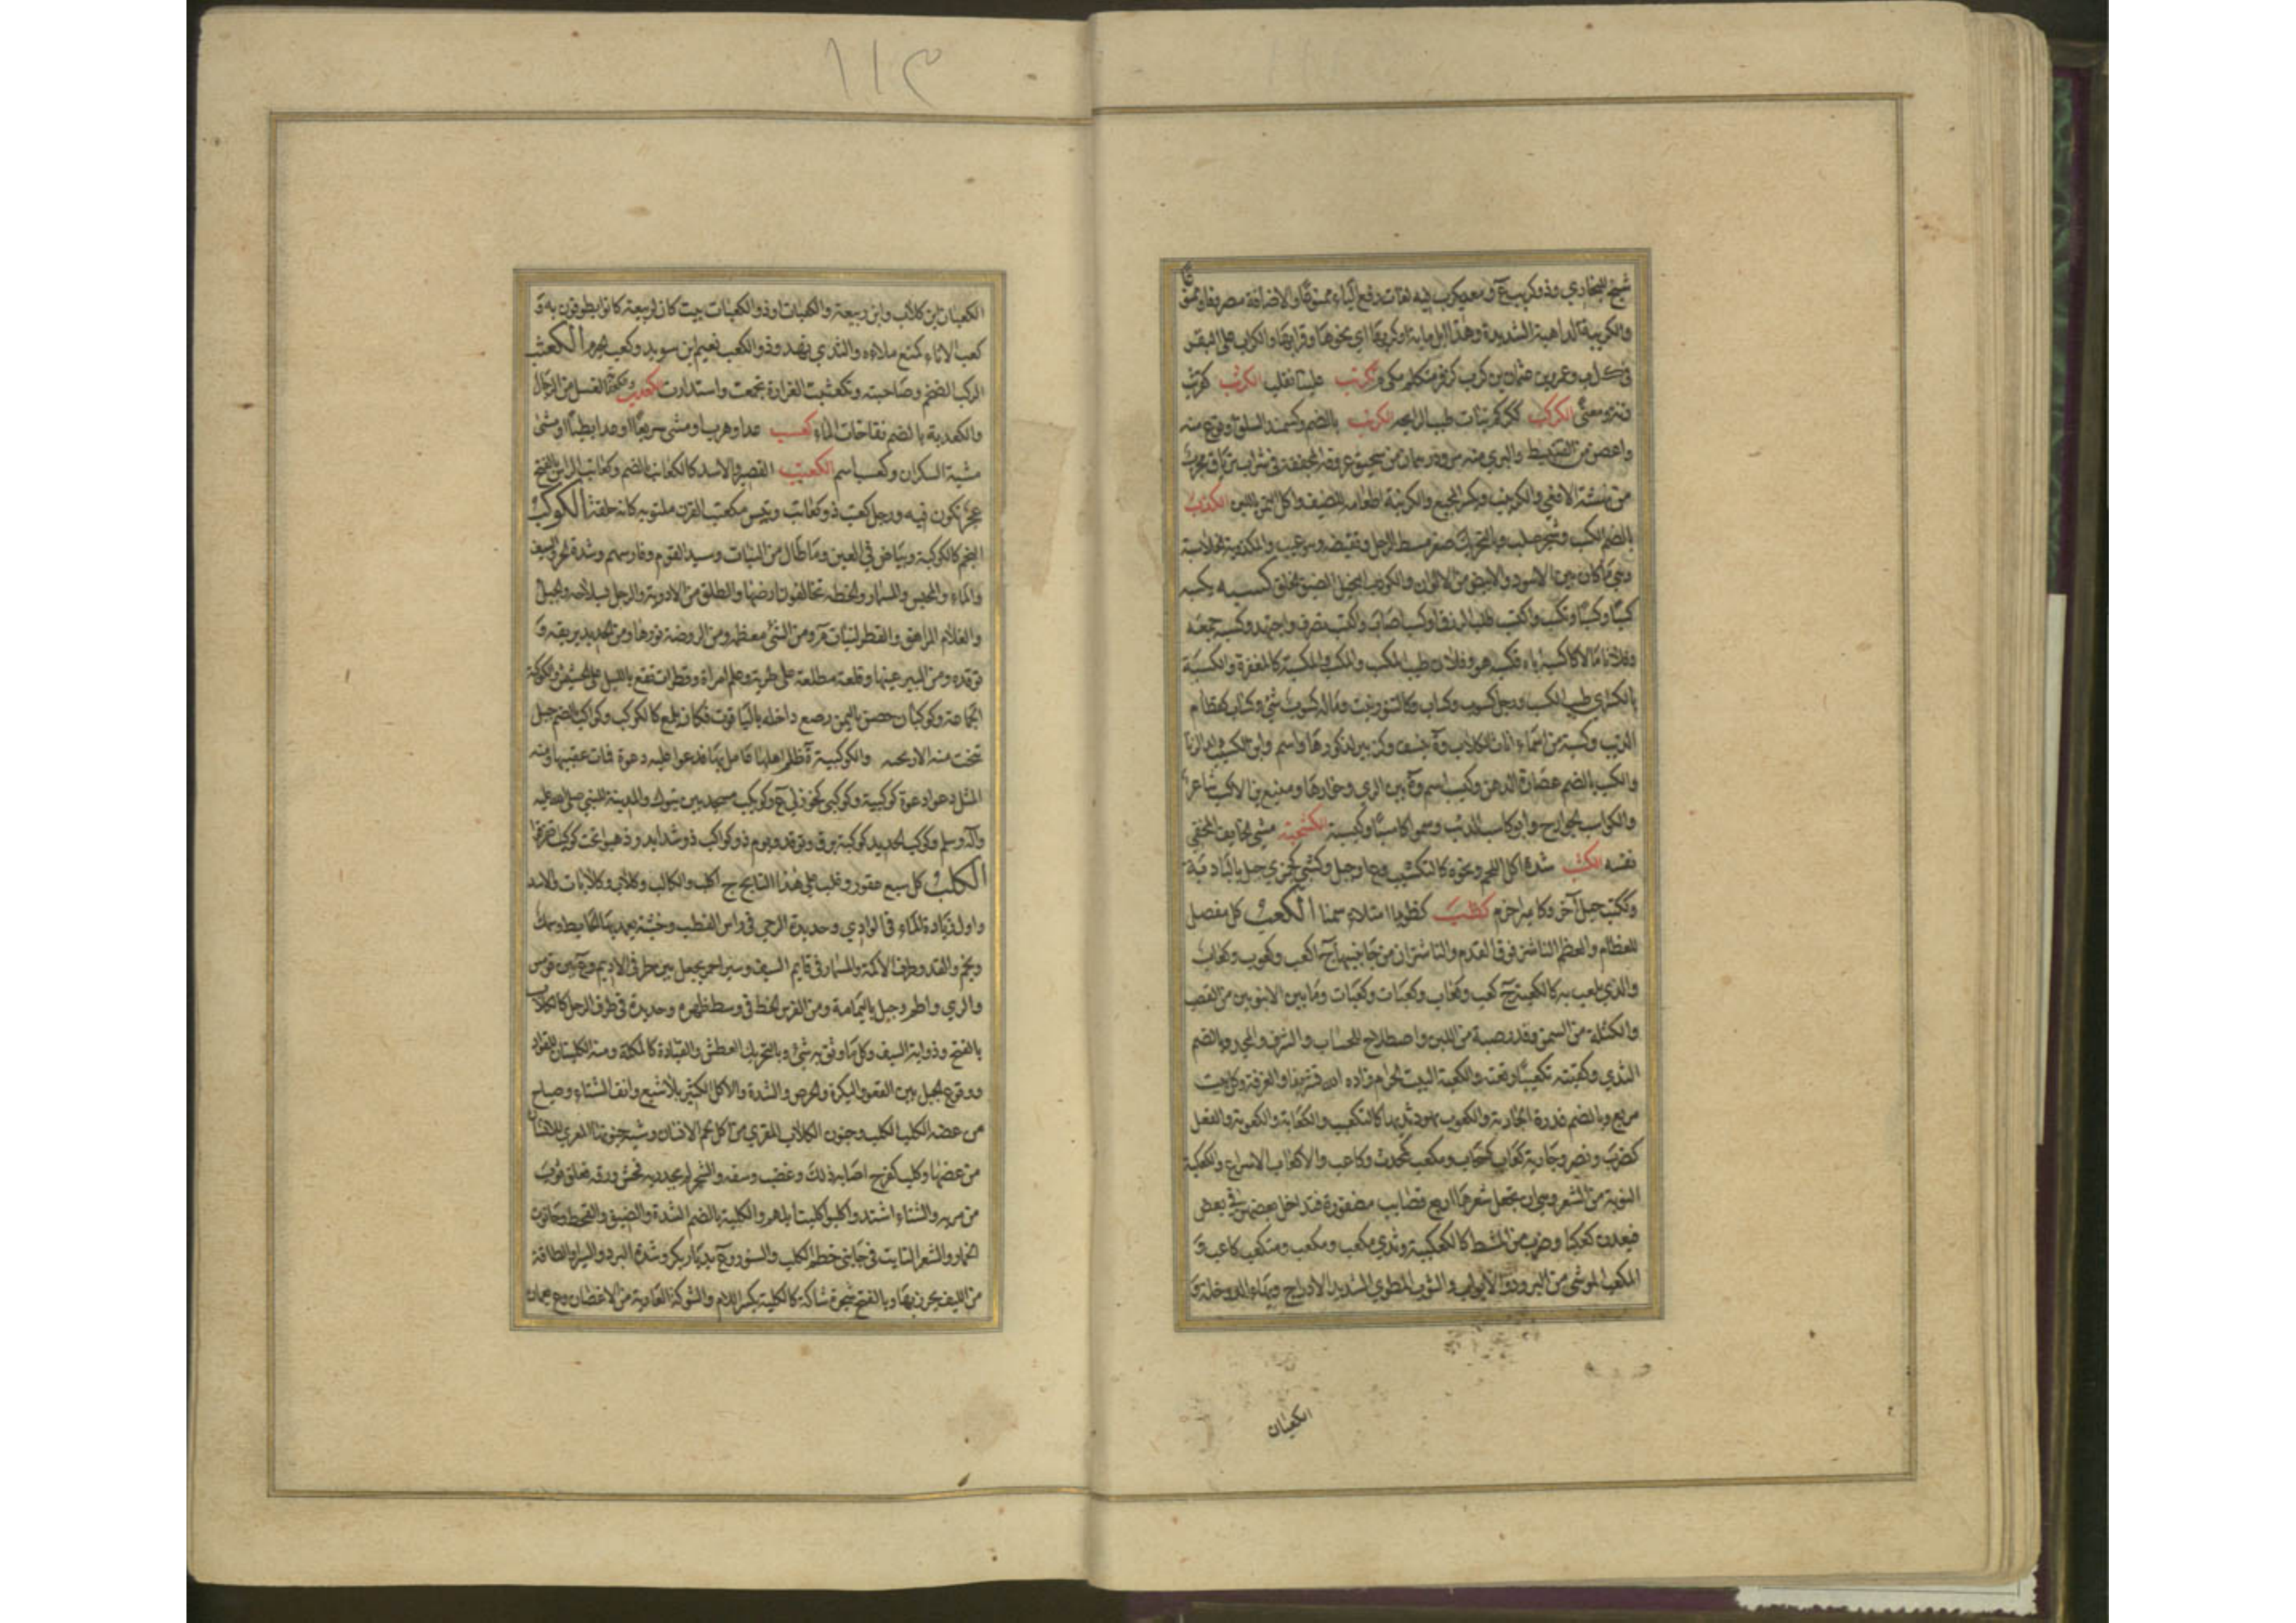 شيخ للبخاري وذو كريب ع ومعديكرب فيه لغات رفع الباء ممنوعًا والاضافة مصروفا وممنوعًا
والكريبة الداهية الشديدة وهذا ابل مائة اوكربها اي نحوها وقرابها والكراب على البقر
في ك ل ب وعمرو بن عثمان بن كرب كزفر متكلم مكي تكرتب علينا تقلب الكرثب كرتب
وزنه ومعنى الكركب ككركم نبات طيب الرائحة الكرنب بالضم وكسمند السلق او نوع منه
واغض من القنبيط والبري منه مر ودرهمان من سحيق عروقه المجففة في شراب ترياق مجرب
من نهشة الافعى والكرنيب ويكسر المجيع والكرنبة اطعامه للضيف واكل التمر باللبن الكزب
بالضم الكسب وشجر صلب وبالتحريك صغر مشط الرجل وتقبضه وهو عيب والمكزوبة الخلاسية
وهي ما كان بين الاسود والابيض من الالوان والكوزب البخيل الضيق الخلق كسبه يكسبه
كسبًا وكسبًا وتكسب واكتسب طلب الرزق او كسب اصاب واكتسب تصرف واجتهد وكسبه جمعه
وفلانا مالا كاكسبه اياه فكسبه هو وفلان طيب المكسب والمكسب والمكسبة كالمغفرة والكسبة
بالكسر اي طيب الكسب ورجل كسوب وكساب وكالتنور نبت وماله كسوب شئ وكساب كقطام
الذئب وكسبة من اسماء اناث الكلاب وة بنسف وكزبير لذكورها واسم وابن الكسيب ولد الزنا
والكسب بالضم عصارة الدهن وكسب اسم وة بين الري وخوارها ومنيع بن الاكسب شاعر
والكواسب الجوارح وابو كاسب الذئب وسموا كاسبًا وكيسبة الكشحبة مشي الخائف المخفي
نفسه الكشب شدة اكل اللحم ونحوه كالتكشيب وع او جبل وكشبى كجمزى جبل بالبادية
وككتب جبل آخر وكامير اخرم كظب كظوبا امتلاء سمنا الكعب كل مفصل
للعظام والعظم الناشز فوق القدم والناشزان من جانبيها ج اكعب وكعوب وكعاب
والذي يلعب به كالكعبة ج كعب وكعاب وكعبات وكعبات وما بين الانبوبين من القصب
والكتلة من السمن وقدر صبة من اللبن واصطلاح للحساب والشرف والمجد وبالضم
الثدي وكعبته تكعيبًا ربعته والكعبة البيت الحرام زاده الله تشريفا والغرفة وكل بيت
مربع وبالضم عذرة الجارية والكعوب نهود ثديها كالتكعيب والكعابة والكعوبة والفعل
كضرب ونصر وجارية كعاب كسحاب ومكعب كمحدث وكاعب والاكعاب الاسراع والكعكبة
النونة من الشعر وهي ان تجعل شعرها اربع قصائب مضفورة فتداخل بعضهن في بعض
فيعدن كعكبا وضرب من المشط كالكعكبية وثدي مكعب ومكعب ومتكعب كاعب و
المكعب الموشى من البرود والاثواب والثوب المطوي الشديد الادراج وبهاء الدوخلة و
الكعبان
١١٣
الكعبان ابن كلاب وابن ربيعة والكعبات او ذو الكعبات بيت كان لربيعة كانوا يطوفون به و
كعب الاناء كمنع ملاءه والثدي نهد وذو الكعب نعيم ابن سويد وكعب الحبر م الكعثب
الركب الضخم وصاحبته وتكعثبت الغرارة تجمعت واستدارت الكعدب والكعدبة الفسل من الرجال
والكعدبة بالضم نفاخات الماء كعسب عدا وهرب او مشى سريعًا او عدا بطيئًا او مشى
مشية السكران وكعسب اسم الكعنب القصير والاسد كالكعانب بالضم وكعانب الراس بالفتح
عجر تكون فيه ورجل كعنب ذو كعانب وتيس مكعنب القرن ملتويه كانه حلقة الكوكب
النجم كالكوكبة وبياض في العين وما طال من النبات وسيد القوم وفارسهم وشدة الحر والسيف
والماء والمحبس والمسمار والخطة تخالف لون ارضها والطلق من الادوية والرجل بسلاحه والجبل
والغلام المراهق والفطر لنبات م ومن الشئ معظمه ومن الروضة نورها ومن الحديد بريقه و
توقده ومن البير عينها وقلعة مطلعة على طبرية وعلم امراة وقطرات تقع بالليل على الحشيش والكوكبة
الجماعة وكوكبان حصن باليمن رصع داخله بالياقوت فكان يلمع كالكوكب وكواكب بالضم جبل
تنحت منه الارحية والكوكبية ة ظلم اهلها عامل بها فدعوا عليه دعوة فمات عقيبها ومنه
المثل دعوا دعوة كوكبية وكوكبى كخوزلى ع وكويكب مسجد بين تبوك والمدينة للنبي صلى الله عليه
وآله وسلم وكوكب الحديد كوكبة برق وتوقد ويوم ذو كواكب ذو شدايد وذهبوا تحت كل كوكب تفرقوا
الكلب كل سبع عقور وغلب على هذا النابح ج اكلب واكالب وكلاب وكلابات والاسد
واول زيادة الماء في الوادي وحديدة الرحى في راس القطب وخشبة يعمد بها الحائط وسمك
ونجم والقد وطرف الاكمة والمسمار في قائم السيف وسير احمر يجعل بين طرفي الاديم وع بين قومس
والري واطم وجبل باليمامة ومن الفرس الخط في وسط ظهره وحديدة في طرف الرحل كالكلاب
بالفتح وذوابة السيف وكل ما وثق به شئ وبالتحريك العطش والقيادة كالمكلبة ومنه الكلتبان للقواد
ووقوع الحبل بين القعو والبكرة والحرص والشدة والاكل الكثير بلا شبع وانف الشتاء وصياح
من عضه الكلب الكلب وجنون الكلاب المعتري من اكل لحم الانسان وشبه جنونها المعتري للانسان
من عضها وكلب كفرح اصابه ذلك وغضب وسفه والشجر لم يجد ريه فخشن ورقه فعلق ثوب
من مر به والشتاء اشتد واكلبوا كلبت ابلهم والكلبة بالضم الشدة والضيق والقحط وحانوت
الخمار والشعر النابت في جانبي خطم الكلب والسنور وع بديار بكر وشدة البرد والسير والطاقة
من الليف يخرز بها وبالفتح شجرة شاكة كالكلبة بكسر اللام والشوكة العارية من الاغصان وع بعمان